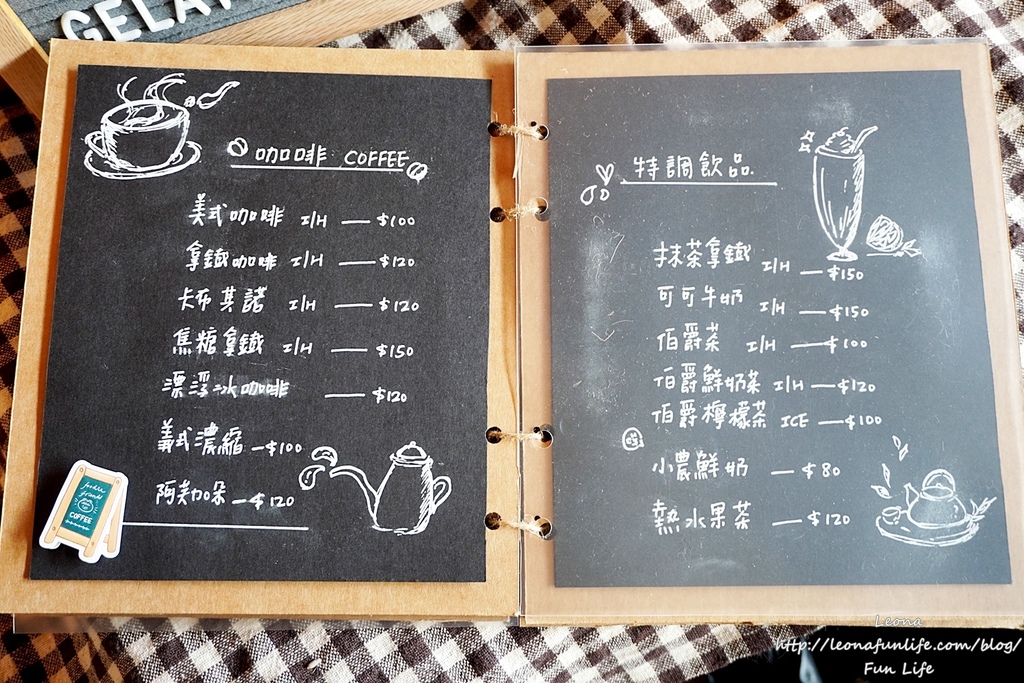 GELAT
咖啡 COFFEE
美式咖啡 I/H — $100
拿鐵咖啡 I/H — $120
卡布其諾 I/H — $120
焦糖拿鐵 I/H — $150
漂浮冰咖啡 — $120
義式濃縮 — $100
阿芙加朵 — $120
COFFEE
特調飲品
抹茶拿鐵 I/H — $150
可可牛奶 I/H — $150
伯爵茶 I/H — $100
伯爵鮮奶茶 I/H — $120
伯爵檸檬茶 ICE — $100
小農鮮奶 — $80
熱水果茶 — $120
Leona
http://leonafunlife.com/blog/
Fun Life